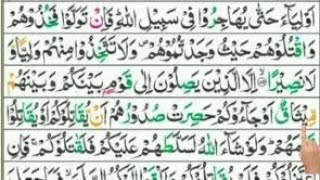 اَوْلِيَآءَ حَتّٰى يُهَاجِرُوْا فِىْ سَبِيْلِ اللّٰهِ ؕ فَاِنْ تَوَلَّوْا فَخُذُوْهُمْ
وَاقْتُلُوْهُمْ حَيْثُ وَجَدْتُّمُوْهُمْ ۪ وَلَا تَتَّخِذُوْا مِنْهُمْ وَلِيًّا وَّ
لَا نَصِيْرًا ۙ اِلَّا الَّذِيْنَ يَصِلُوْنَ اِلٰى قَوْمٍۭ بَيْنَكُمْ وَبَيْنَهُمْ
مِّيْثَاقٌ اَوْ جَآءُوْكُمْ حَصِرَتْ صُدُوْرُهُمْ اَنْ يُّقَاتِلُوْكُمْ اَوْ يُقَاتِلُوْا
قَوْمَهُمْ ؕ وَلَوْ شَآءَ اللّٰهُ لَسَلَّطَهُمْ عَلَيْكُمْ فَلَقٰتَلُوْكُمْ ۚ فَاِنِ